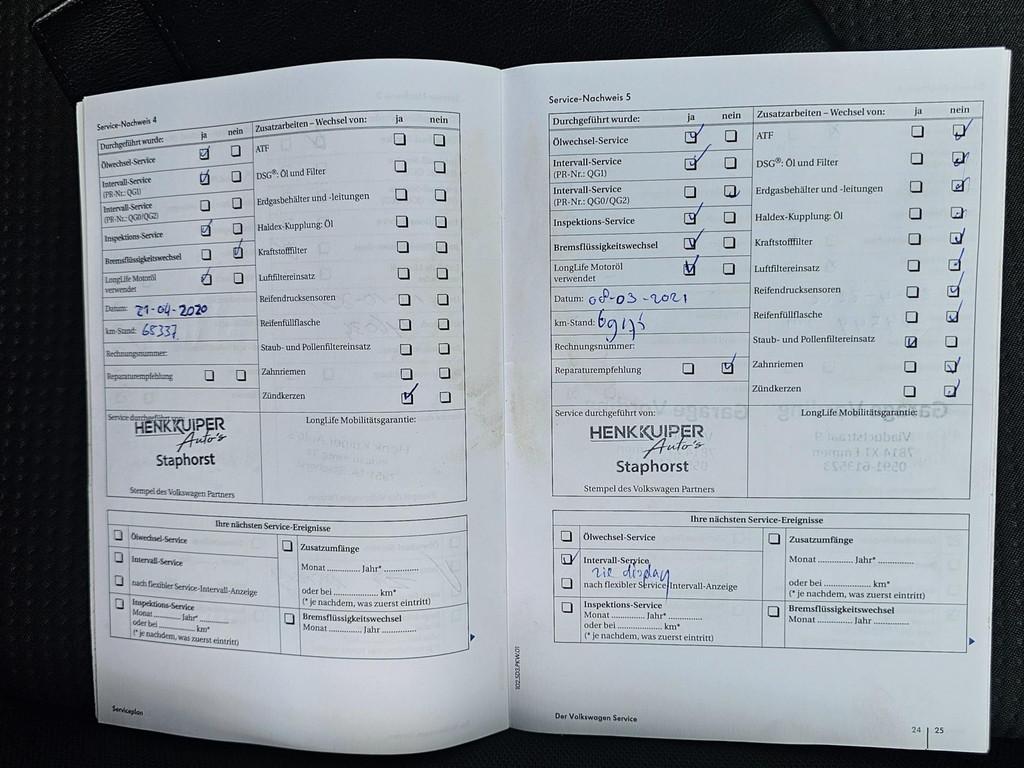 Service-Nachweis 4
Durchgeführt wurde: ja nein Zusatzarbeiten – Wechsel von: ja nein
Ölwechsel-Service
Intervall-Service
(PR-Nr.: QG1)
Intervall-Service
(PR-Nr.: QG0/QG2)
Inspektions-Service
Bremsflüssigkeitswechsel
LongLife Motoröl
verwendet
Datum: 21-04-2020
km-Stand: 65337
Rechnungsnummer:
Reparaturempfehlung
ATF
DSG®: Öl und Filter
Erdgasbehälter und -leitungen
Haldex-Kupplung: Öl
Kraftstofffilter
Luftfiltereinsatz
Reifendrucksensoren
Reifenfüllflasche
Staub- und Pollenfiltereinsatz
Zahnriemen
Zündkerzen
Service durchgeführt von:
HENK KUIPER
Auto's
Staphorst
Stempel des Volkswagen Partners
LongLife Mobilitätsgarantie:
Ihre nächsten Service-Ereignisse
Ölwechsel-Service
Intervall-Service
nach flexibler Service-Intervall-Anzeige
Inspektions-Service
Monat ............ Jahr* ............
oder bei ............ km*
(* je nachdem, was zuerst eintritt)
Zusatzumfänge
Monat ............ Jahr* ............
oder bei ............ km*
(* je nachdem, was zuerst eintritt)
Bremsflüssigkeitswechsel
Monat ............ Jahr ............
Serviceplan
Service-Nachweis 5
Durchgeführt wurde: ja nein Zusatzarbeiten – Wechsel von: ja nein
Ölwechsel-Service
Intervall-Service
(PR-Nr.: QG1)
Intervall-Service
(PR-Nr.: QG0/QG2)
Inspektions-Service
Bremsflüssigkeitswechsel
LongLife Motoröl
verwendet
Datum: 08-03-2021
km-Stand:
Rechnungsnummer:
Reparaturempfehlung
ATF
DSG®: Öl und Filter
Erdgasbehälter und -leitungen
Haldex-Kupplung: Öl
Kraftstofffilter
Luftfiltereinsatz
Reifendrucksensoren
Reifenfüllflasche
Staub- und Pollenfiltereinsatz
Zahnriemen
Zündkerzen
Service durchgeführt von:
HENK KUIPER
Auto's
Staphorst
Stempel des Volkswagen Partners
LongLife Mobilitätsgarantie:
Ihre nächsten Service-Ereignisse
Ölwechsel-Service
Intervall-Service
zie display
nach flexibler Service-Intervall-Anzeige
Inspektions-Service
Monat ............ Jahr* ............
oder bei ............ km*
(* je nachdem, was zuerst eintritt)
Zusatzumfänge
Monat ............ Jahr* ............
oder bei ............ km*
(* je nachdem, was zuerst eintritt)
Bremsflüssigkeitswechsel
Monat ............ Jahr ............
102.5D3.PKW.01
Der Volkswagen Service
24 25